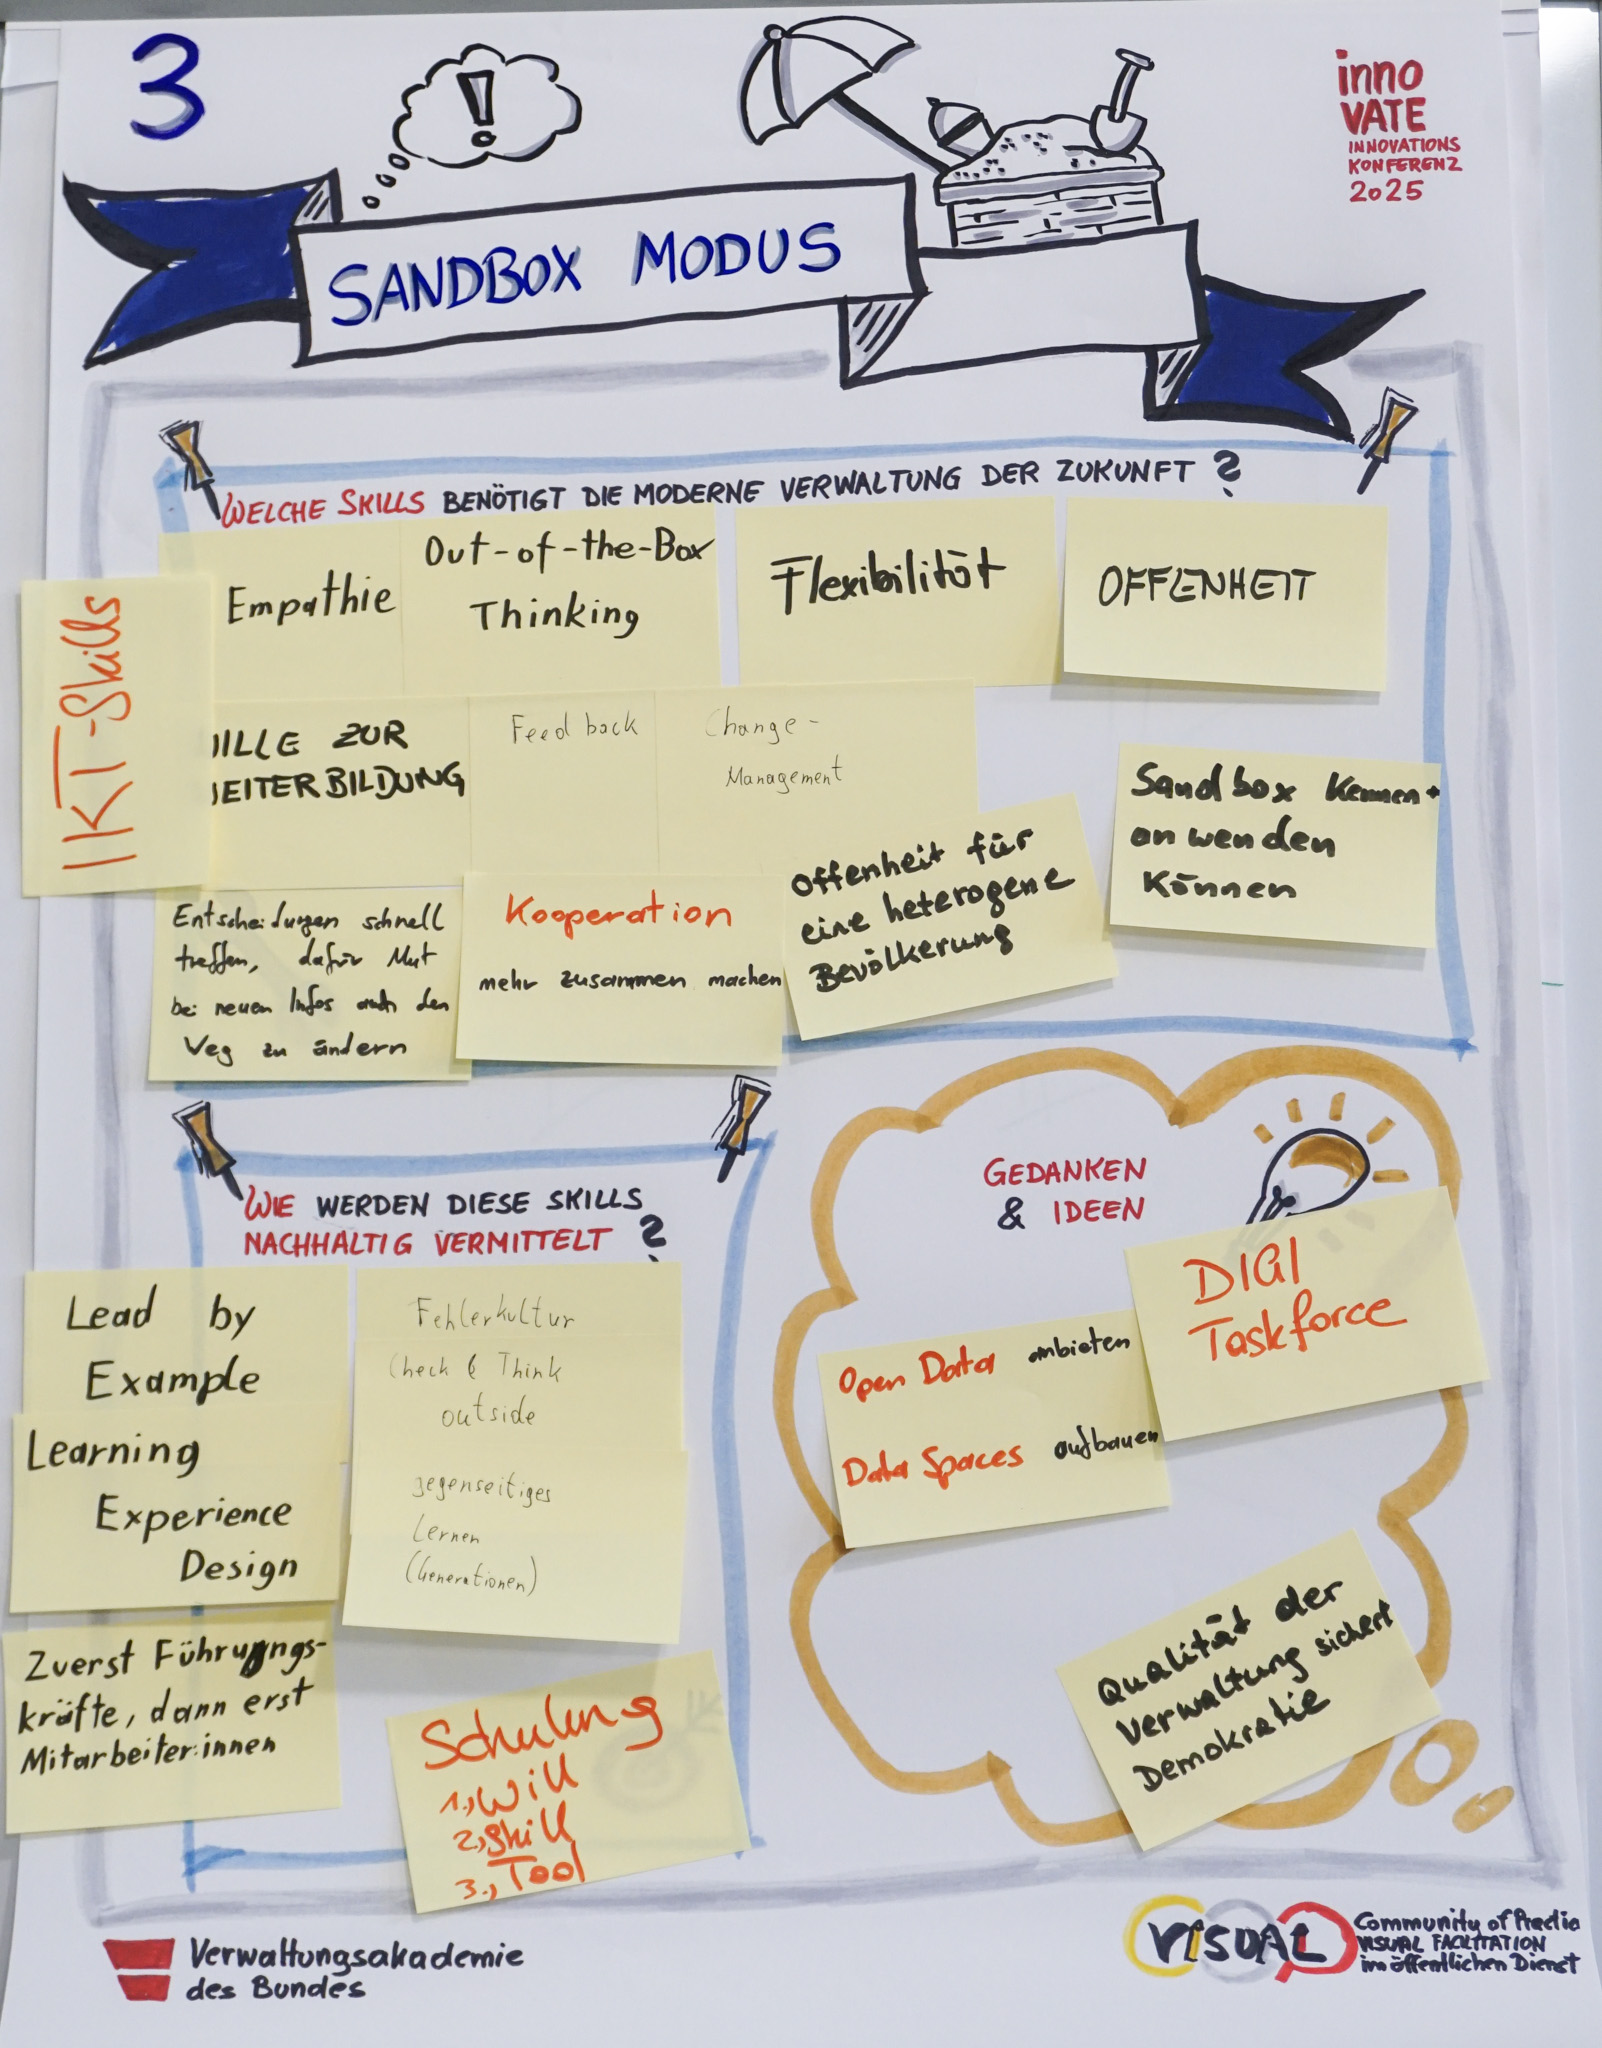 3
!
inno
VATE
INNOVATIONS
KONFERENZ
2025
SANDBOX MODUS
WELCHE SKILLS BENÖTIGT DIE MODERNE VERWALTUNG DER ZUKUNFT ?
IKT-Skills
Empathie
Out-of-the-Box
Thinking
Flexibilität
OFFENHEIT
ILLE ZUR
EITERBILDUNG
Feedback
Change-
Management
Sandbox kennen +
anwenden
können
Entscheidungen schnell
treffen, dafür Mut
bei neuen Infos auch den
Weg zu ändern
Kooperation
mehr zusammen machen
Offenheit für
eine heterogene
Bevölkerung
WIE WERDEN DIESE SKILLS
NACHHALTIG VERMITTELT ?
Lead by
Example
Learning
Experience
Design
Zuerst Führungs-
kräfte, dann erst
Mitarbeiter:innen
Fehlerkultur
Check & Think
outside
gegenseitiges
Lernen
(Generationen)
Schulung
1., Will
2., Skill
3., Tool
GEDANKEN
& IDEEN
DIGI
Taskforce
Open Data anbieten
Data Spaces aufbauen
Qualität der
Verwaltung sichert
Demokratie
Verwaltungsakademie
des Bundes
VISUAL
Community of Practice
VISUAL FACILITATION
im öffentlichen Dienst